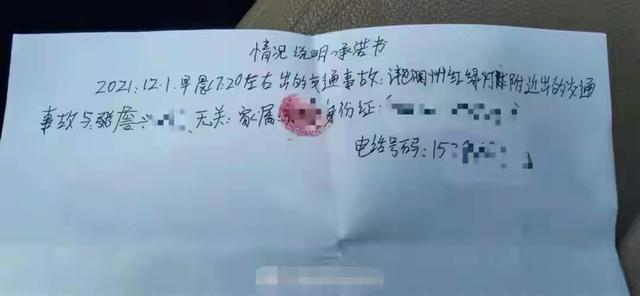 情况说明承诺书
2021.12.1.早晨7.20左右出的交通事故,润州红绿灯附近出的交通
事故与 詹 无关:家属 身份证:
电话号码:15